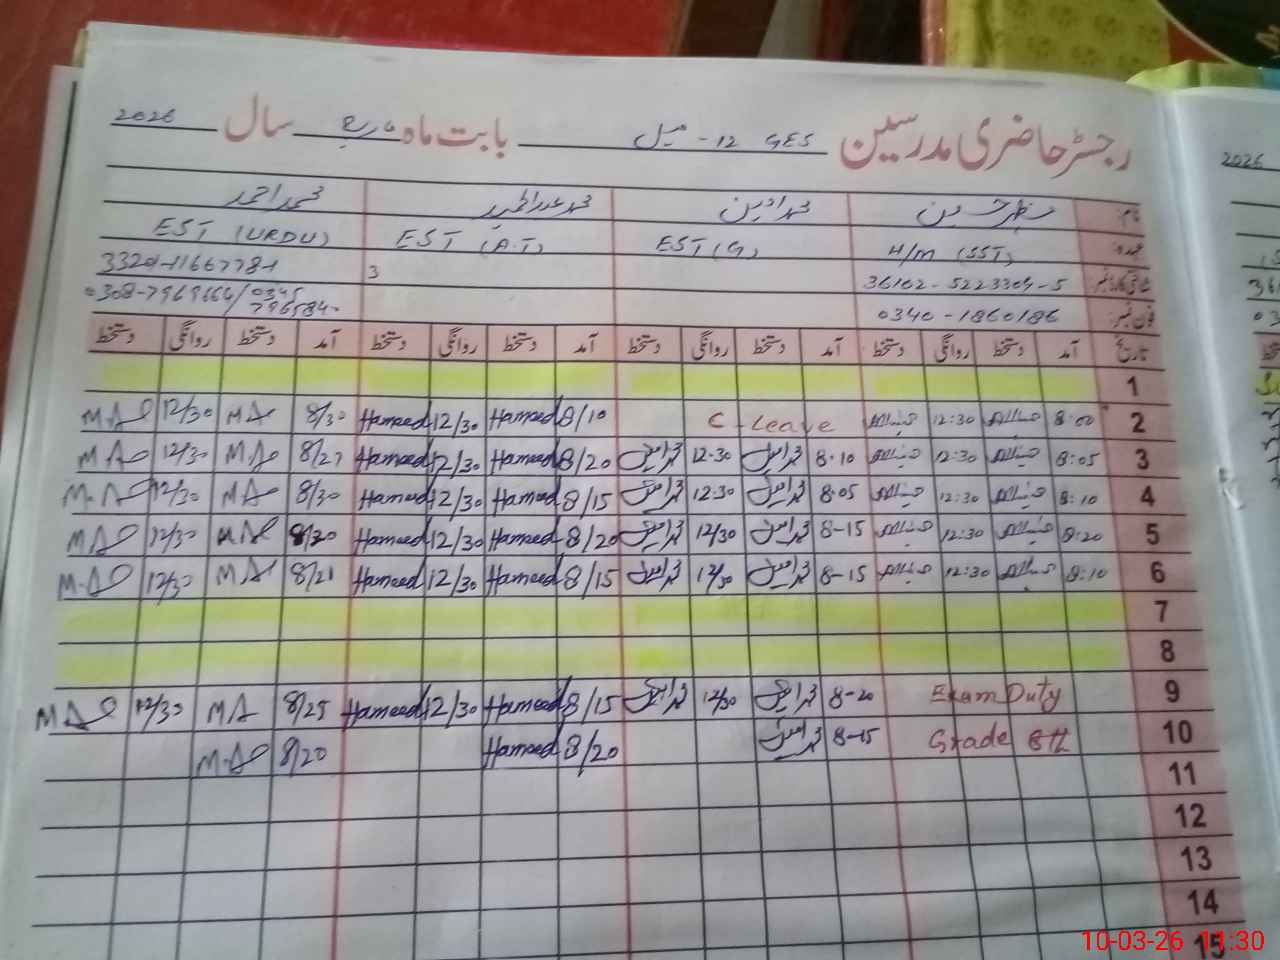 رجسٹر حاضری مدرسین GES 12- میل بابت ماہ مارچ سال 2026
نام: مظہر حسین محمد امین محمد عبدالحمید محمد احمد
عہدہ: H/M (SST) EST (G) EST (A.T) EST (URDU)
شناختی کارڈ نمبر: 36102-5223304-5 3
فون نمبر: 0340-1860186 0308-7969664/0345
تاریخ آمد دستخط روانگی دستخط آمد دستخط روانگی دستخط آمد دستخط روانگی دستخط آمد دستخط روانگی دستخط
1
2 8:00 12:30 C-Leave 8/10 Hameed 12/30 Hameed 8/30 MA 12/30 MA
3 8:05 12:30 8.10 محمد امین 12.30 محمد امین 8/20 Hameed 12/30 Hameed 8/27 MA 12/30 MA
4 8:10 12:30 8.05 محمد امین 12.30 محمد امین 8/15 Hameed 12/30 Hameed 8/30 MA 12/30 M.A
5 8:20 12:30 8-15 محمد امین 12/30 محمد امین 8/20 Hameed 12/30 Hameed 8/20 MA 12/30 MA
6 8:10 12:30 8-15 محمد امین 12/30 محمد امین 8/15 Hameed 12/30 Hameed 8/21 MA 12/30 M.A
7
8
9 Exam Duty 8-20 محمد امین 12/30 محمد امین 8/15 Hameed 12/30 Hameed 8/25 MA 12/30 MA
10 Grade 8th 8-15 محمد امین 8/20 Hameed 8/20 M.A
11
12
13
14
15
2026
10-03-26 11:30